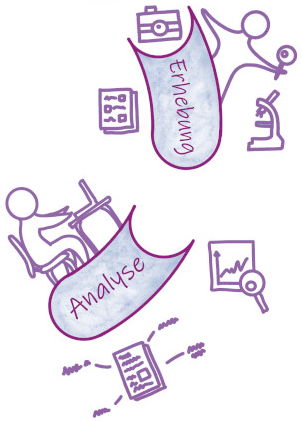 Erhebung
Analyse